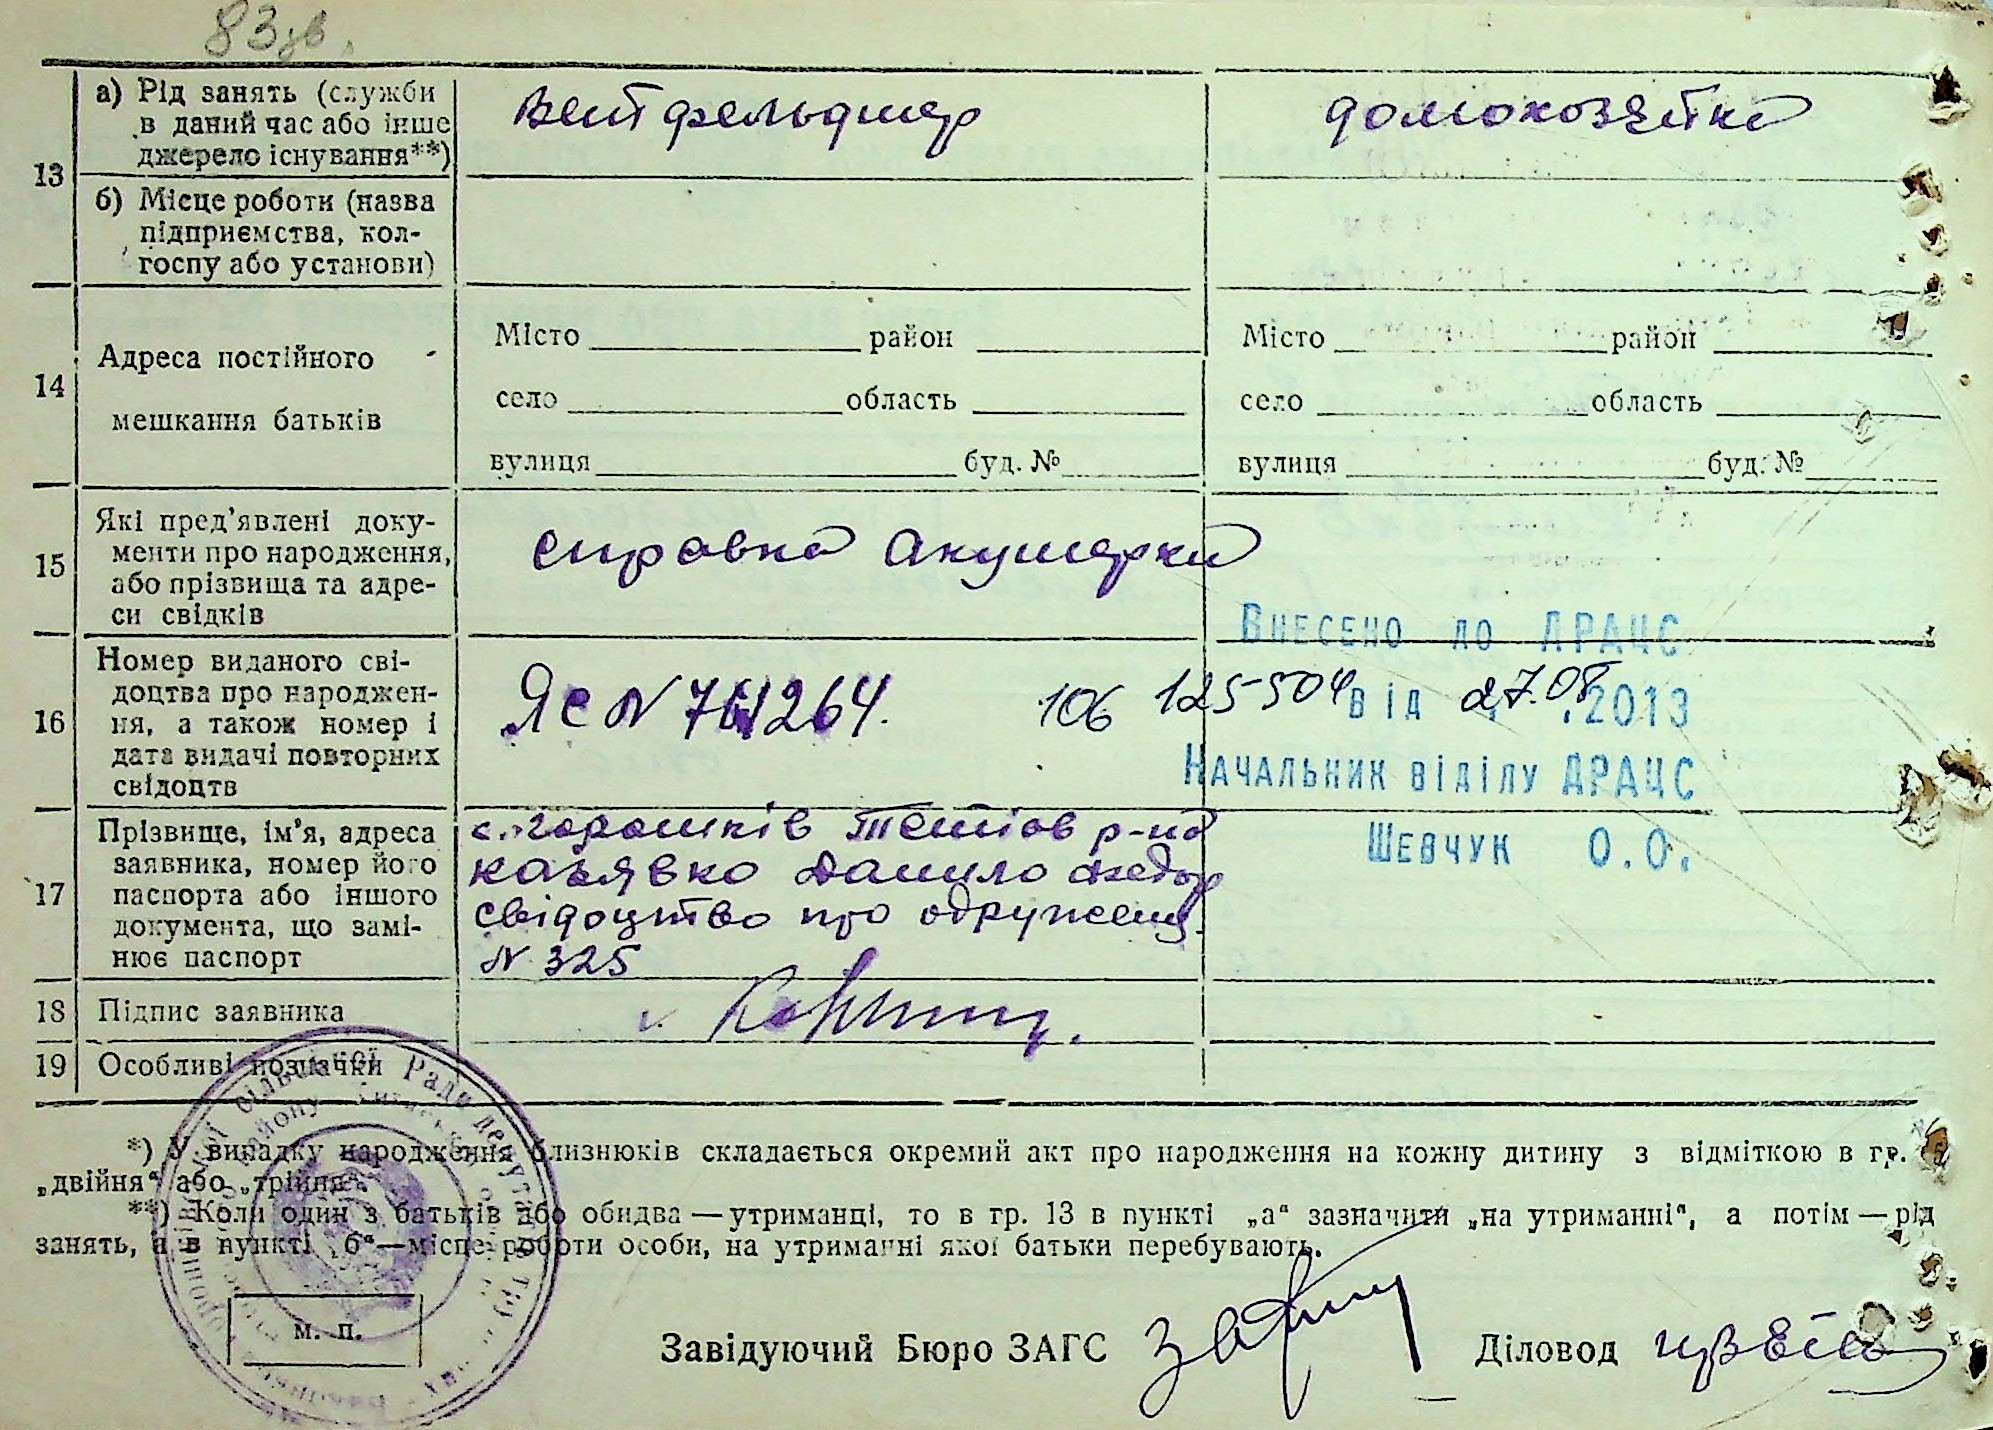 83зв.
13
а) Рід занять (служби
в даний час або інше
джерело існування**)
ветфельдшер
домохозяйка
б) Місце роботи (назва
підприємства, кол-
госпу або установи)
14
Адреса постійного
мешкання батьків
Місто район
село область
вулиця буд. №
Місто район
село область
вулиця буд. №
15
Які пред'явлені доку-
менти про народження,
або прізвища та адре-
си свідків
справка акушерки
16
Номер виданого сві-
доцтва про народжен-
ня, а також номер і
дата видачі повторних
свідоцтв
ЯС N 761264.
Внесено до ДРАЦС
106 125504 від 27.08.2013
Начальник віділу ДРАЦС
Шевчук О.О.
17
Прізвище, ім'я, адреса
заявника, номер його
паспорта або іншого
документа, що замі-
нює паспорт
с. Горошків Тетіов р-на
Козявко Данило Федор
свідоцтво про одружен
N 325
18
Підпис заявника
19
Особливі позначки
*) У випадку народження близнюків складається окремий акт про народження на кожну дитину з відміткою в гр.
„двійня“ або „трійня“
**) Коли один з батьків або обидва — утриманці, то в гр. 13 в пункті „а“ зазначити „на утриманні“, а потім — рід
занять, а в пункті „б“ — місце роботи особи, на утриманні якої батьки перебувають.
м. п.
Завідуючий Бюро ЗАГС
Діловод